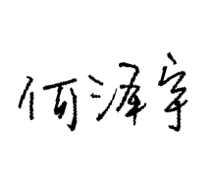 何泽宇